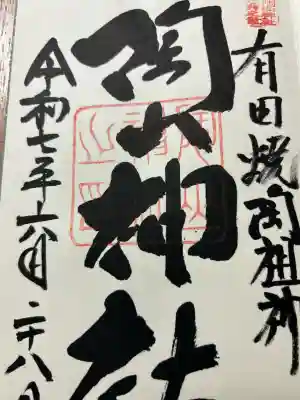 有田焼陶祖神
陶山神社
令和七年六月二十八日